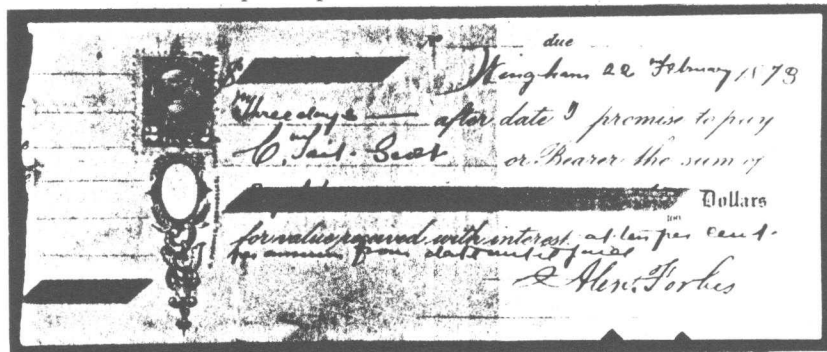 due
Wingham 22 February 1873
Three days — after date I promise to pay
C. Tait Scott or Bearer the sum of
Dollars
100
for value received with interest at ten per cent.
per annum from date until paid
Alex. Forbes